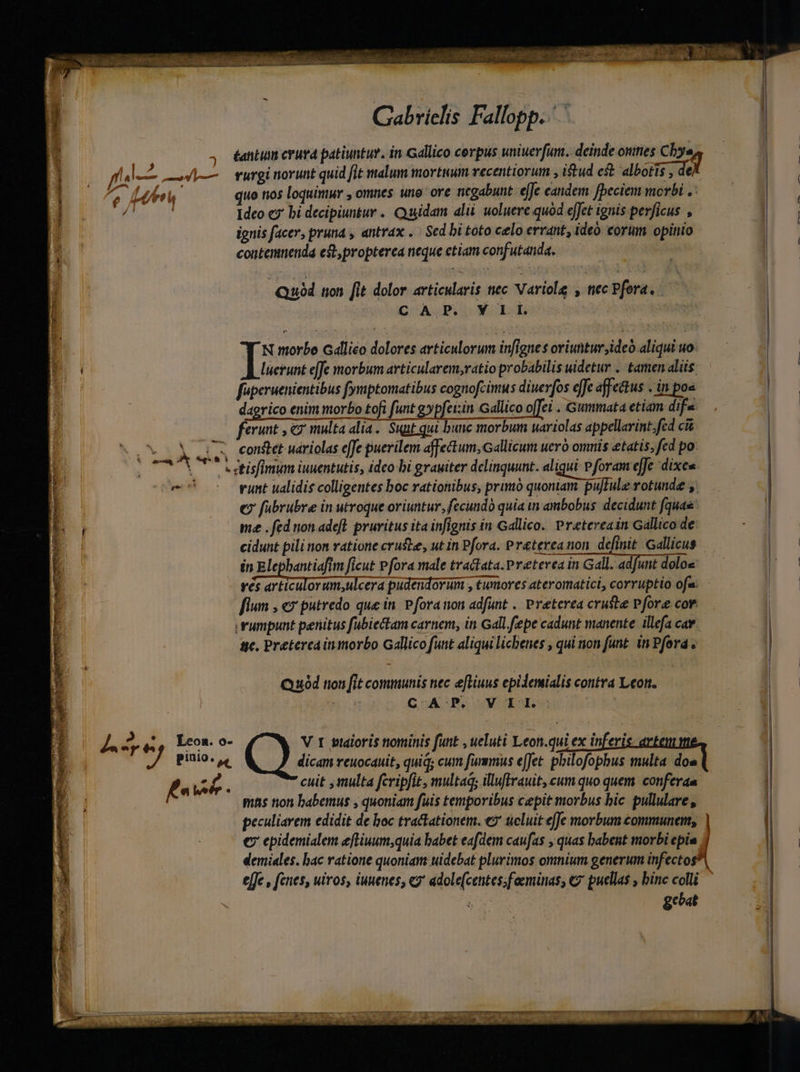 Gabrielis Fallopp.
tantum crura patiuntur. in Gallico corpus uniuersum. deinde omnes Chy⸗
rurgi norunt quid sit malum mortuum recentiorum , istud est albotis , de
quo nos loquimur , omnes uno ore negabunt esse eandem speciem morbi .
Ideo & hi decipiuntur . Quidam alii uoluere quòd esset ignis persicus ,
ignis sacer, pruna , antrax . Sed hi toto cælo errant, ideò eorum opinio
contemnenda est, propterea neque etiam confutanda.
Quòd non sit dolor articularis nec Variolæ , nec Psora.
CAP. VII.
IN morbo Gallico dolores articulorum insignes oriuntur, ideò aliqui uo
luerunt esse morbum articularem, ratio probabilis uidetur . tamen aliis
superuenientibus symptomatibus cognoscimus diuersos esse affectus . in po⸗
dagrico enim morbo tofi sunt gypsei: in Gallico ossei . Gummata etiam dif⸗
ferunt , & multa alia . Sunt qui hunc morbum uariolas appellarint, sed cũ
constet uariolas esse puerilem affectum, Gallicum uerò omnis ætatis, sed po
tissimum iuuentutis, ideo hi grauiter delinquunt. aliqui Psoram esse dixe⸗
runt ualidis colligentes hoc rationibus, primò quoniam pustulæ rotundæ ,
& subrubræ in utroque oriuntur, secundò quia in ambobus decidunt squa⸗
mæ . sed non adest pruritus ita insignis in Gallico. Præterea in Gallico de
cidunt pili non ratione crustæ, ut in Psora. Præterea non definit Gallicus
in Elephantiasim sicut Psora male tractata. Præterea in Gall. adsunt dolo⸗
res articulorum, ulcera pudendorum , tumores ateromatici, corruptio os⸗
sium , & putredo quæ in Psora non adsunt . Præterea crustæ Psoræ cor
rumpunt penitus subiectam carnem, in Gall. sæpe cadunt manente illesa car
ne. Præterea in morbo Gallico sunt aliqui lichenes , qui non sunt in Psora .
Quòd non sit communis nec æstiuus epidemialis contra Leon.
CAP. VIII.
Leon. o-
pinio.
QVI maioris nominis sunt , ueluti Leon. qui ex inferis artem me
dicam reuocauit, quiq; cum summus esset philosophus multa do⸗
cuit , multa scripsit, multaq; illustrauit, cum quo quem confera⸗
mus non habemus , quoniam suis temporibus cæpit morbus hic pullulare,
peculiarem edidit de hoc tractationem. & ueluit esse morbum communem,
& epidemialem æstiuum, quia habet easdem causas , quas habent morbi epi⸗
demiales. hac ratione quoniam uidebat plurimos omnium generum infectos
esse , senes, uiros, iuuenes, & adolescentes, fœminas, & puellas , hinc colli
gebat